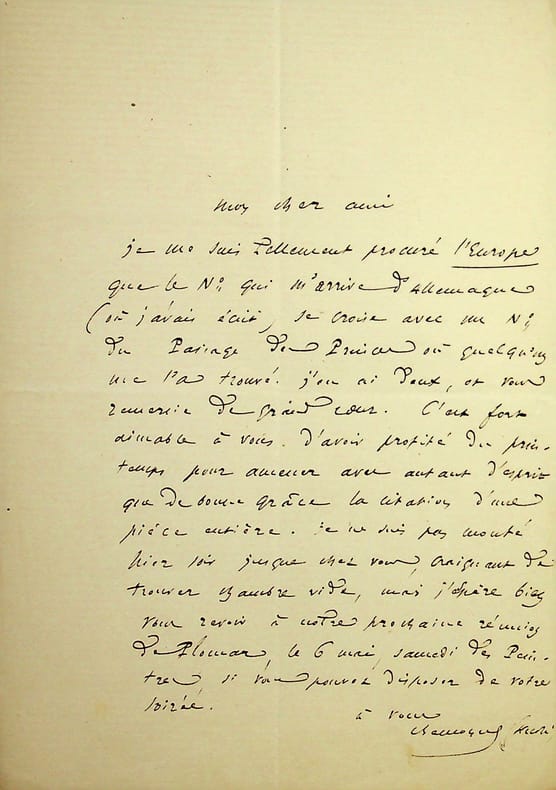 mon cher ami
je me suis tellement procuré l'Europe
que le N° qui m'arrive d'Allemagne
(où j'avais écrit) se croise avec un N°
du Passage des Princes où quelqu'un
me l'a trouvé. j'en ai deux, et vous
remercie de grand cœur. C'est fort
aimable à vous d'avoir profité du prin-
temps pour amener avec autant d'esprit
que de bonne grâce la citation d'une
pièce entière. Je ne suis pas monté
hier soir jusque chez vous, craignant de
trouver chambre vide, mais j'espère bien
vous revoir à notre prochaine réunion
de le 6 mai, samedi des Pein-
tres, si vous pouvez disposer de votre
soirée.
à vous